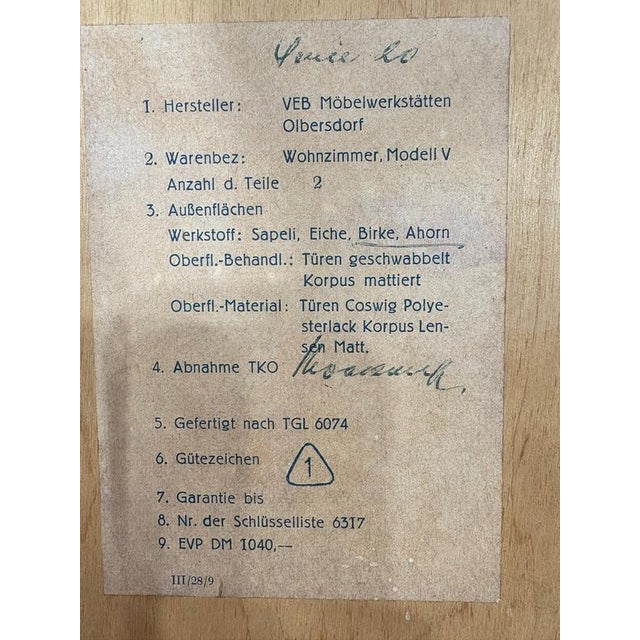 1. Hersteller: VEB Möbelwerkstätten
Olbersdorf
2. Warenbez: Wohnzimmer, Modell V
Anzahl d. Teile 2
3. Außenflächen
Werkstoff: Sapeli, Eiche, Birke, Ahorn
Oberfl.-Behandl.: Türen geschwabbelt
Korpus mattiert
Oberfl.-Material: Türen Coswig Polye-
sterlack Korpus Len-
sen Matt.
4. Abnahme TKO
5. Gefertigt nach TGL 6074
6. Gütezeichen 1
7. Garantie bis
8. Nr. der Schlüsselliste 6317
9. EVP DM 1040,—
III/28/9